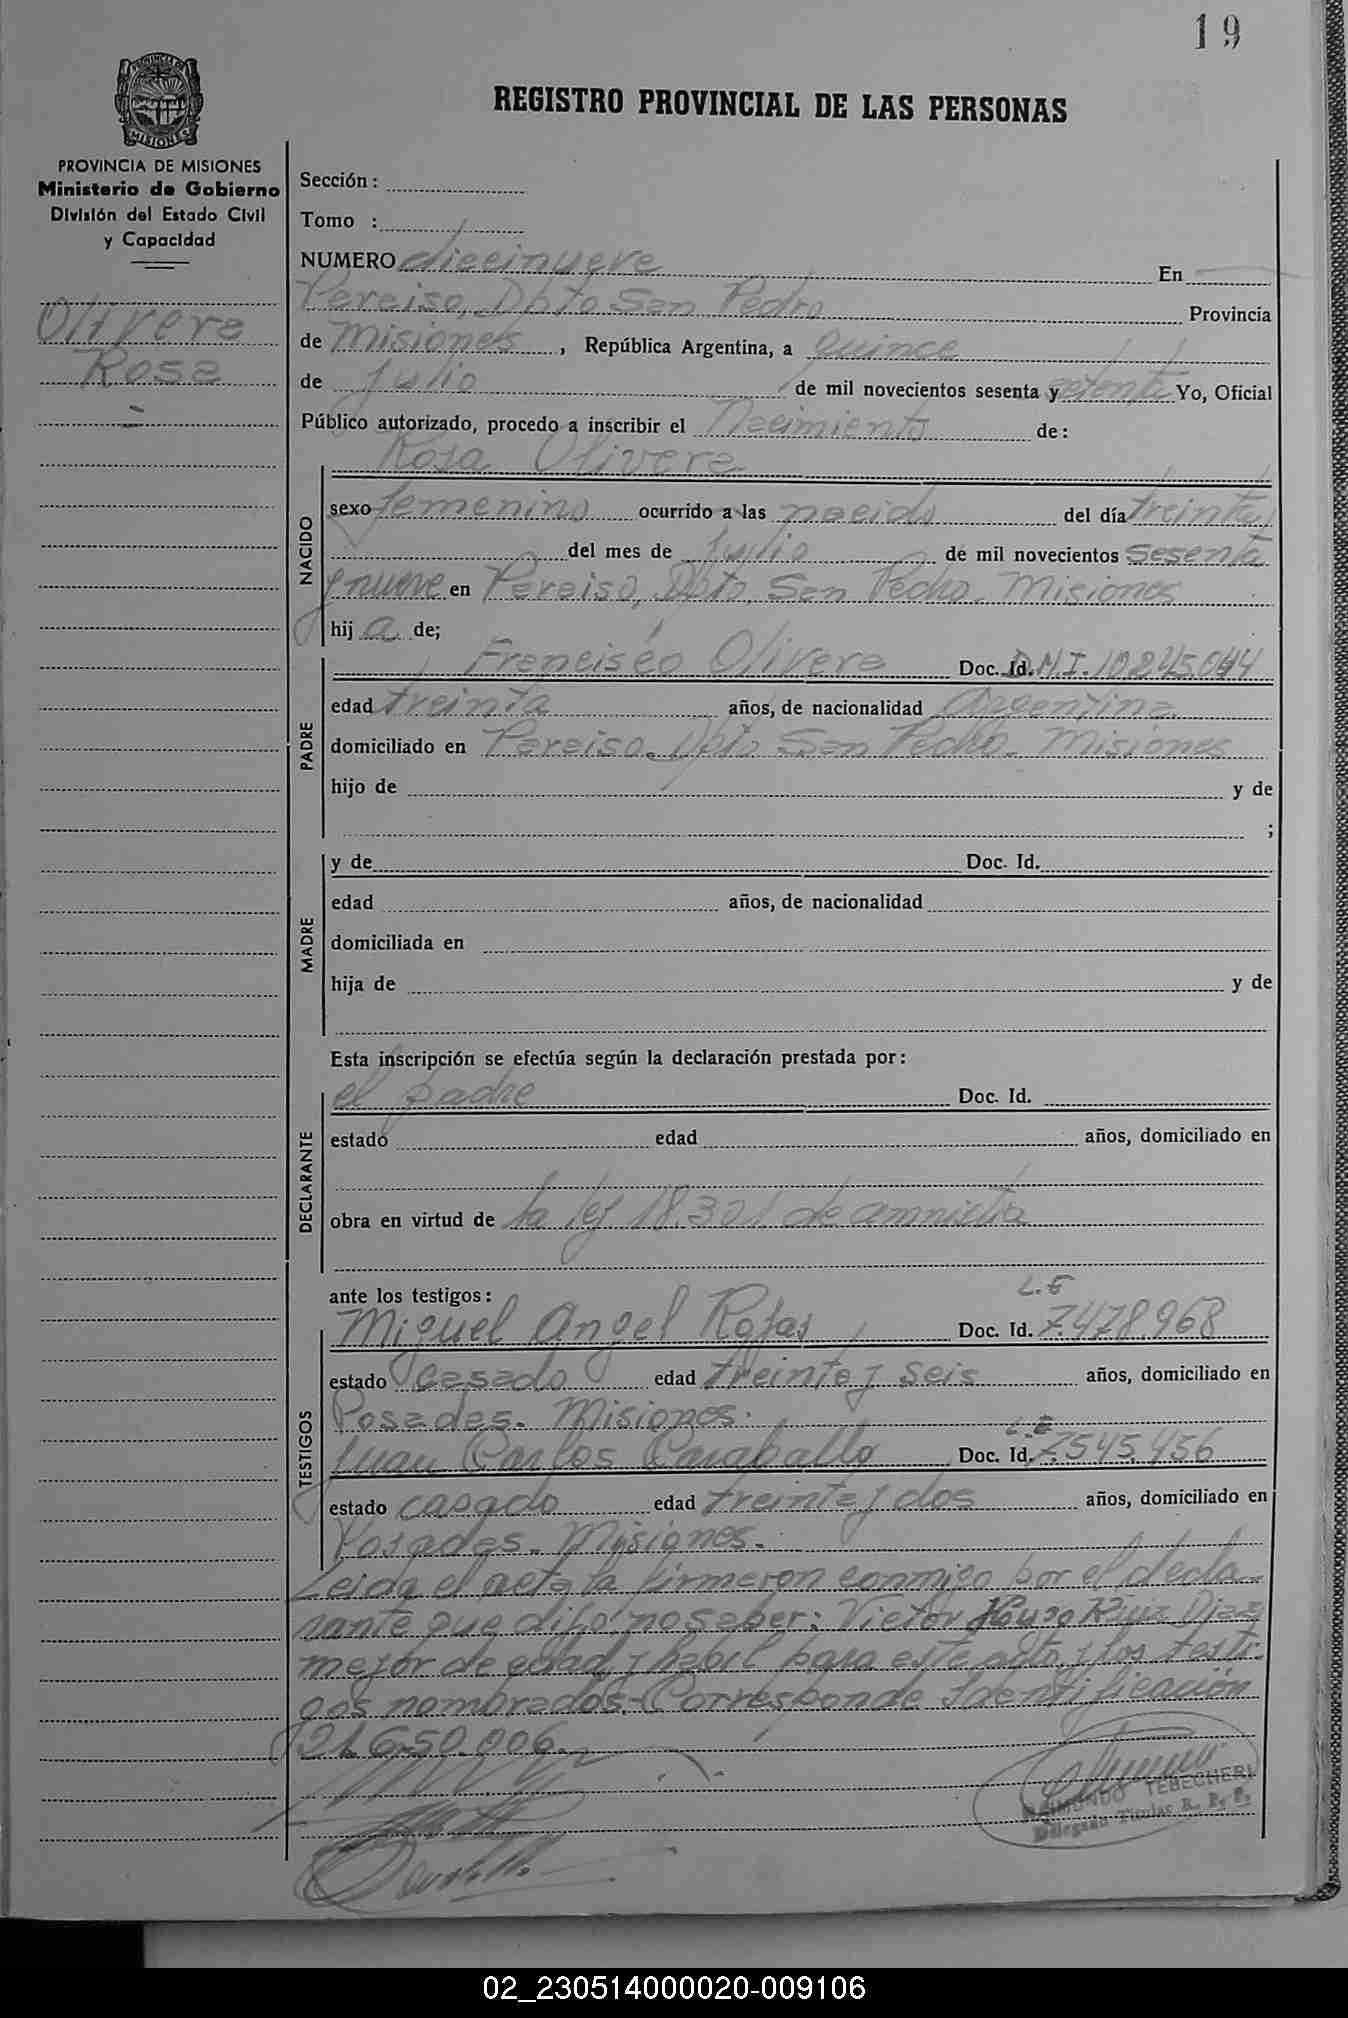 19
REGISTRO PROVINCIAL DE LAS PERSONAS
PROVINCIA DE MISIONES
MISIONES
PROVINCIA DE MISIONES
Ministerio de Gobierno
División del Estado Civil
y Capacidad
Olivera
Rosa
Sección :
Tomo :
NUMERO diecinueve En
Paraiso, Dpto San Pedro Provincia
de Misiones, República Argentina, a quince
de julio de mil novecientos sesenta y setenta Yo, Oficial
Público autorizado, procedo a inscribir el Nacimiento de:
Rosa Olivera
NACIDO
sexo femenino ocurrido a las nacido del día treinta
del mes de julio de mil novecientos sesenta
y nueve en Paraiso, Dpto San Pedro. Misiones
hij a de;
PADRE
Francisco Olivera Doc. Id. D.N.I. 10.245.044
edad treinta años, de nacionalidad Argentina
domiciliado en Paraiso. Dpto San Pedro. Misiones
hijo de y de
;
MADRE
y de Doc. Id.
edad años, de nacionalidad
domiciliada en
hija de y de
Esta inscripción se efectúa según la declaración prestada por:
DECLARANTE
el padre Doc. Id.
estado edad años, domiciliado en
obra en virtud de la ley 18.321 de amnistia
ante los testigos:
TESTIGOS
L.E
Miguel Angel Rojas Doc. Id. 7.478.968
estado casado edad treinta y seis años, domiciliado en
Posadas. Misiones.
L.E
Juan Carlos Caraballo Doc. Id. 7.545.456
estado casado edad treinta y dos años, domiciliado en
Posadas. Misiones.
Leida el acta la firmaron conmigo por el decla-
rante que dijo no saber: Victor Hugo Ruiz Diaz
mejor de edad y habil para este acto y los testi-
gos nombrados. Corresponde Identificación
21.650.006.
RAIMUNDO TEBECHERI
Delegado Titular R. P. P.
02_230514000020-009106